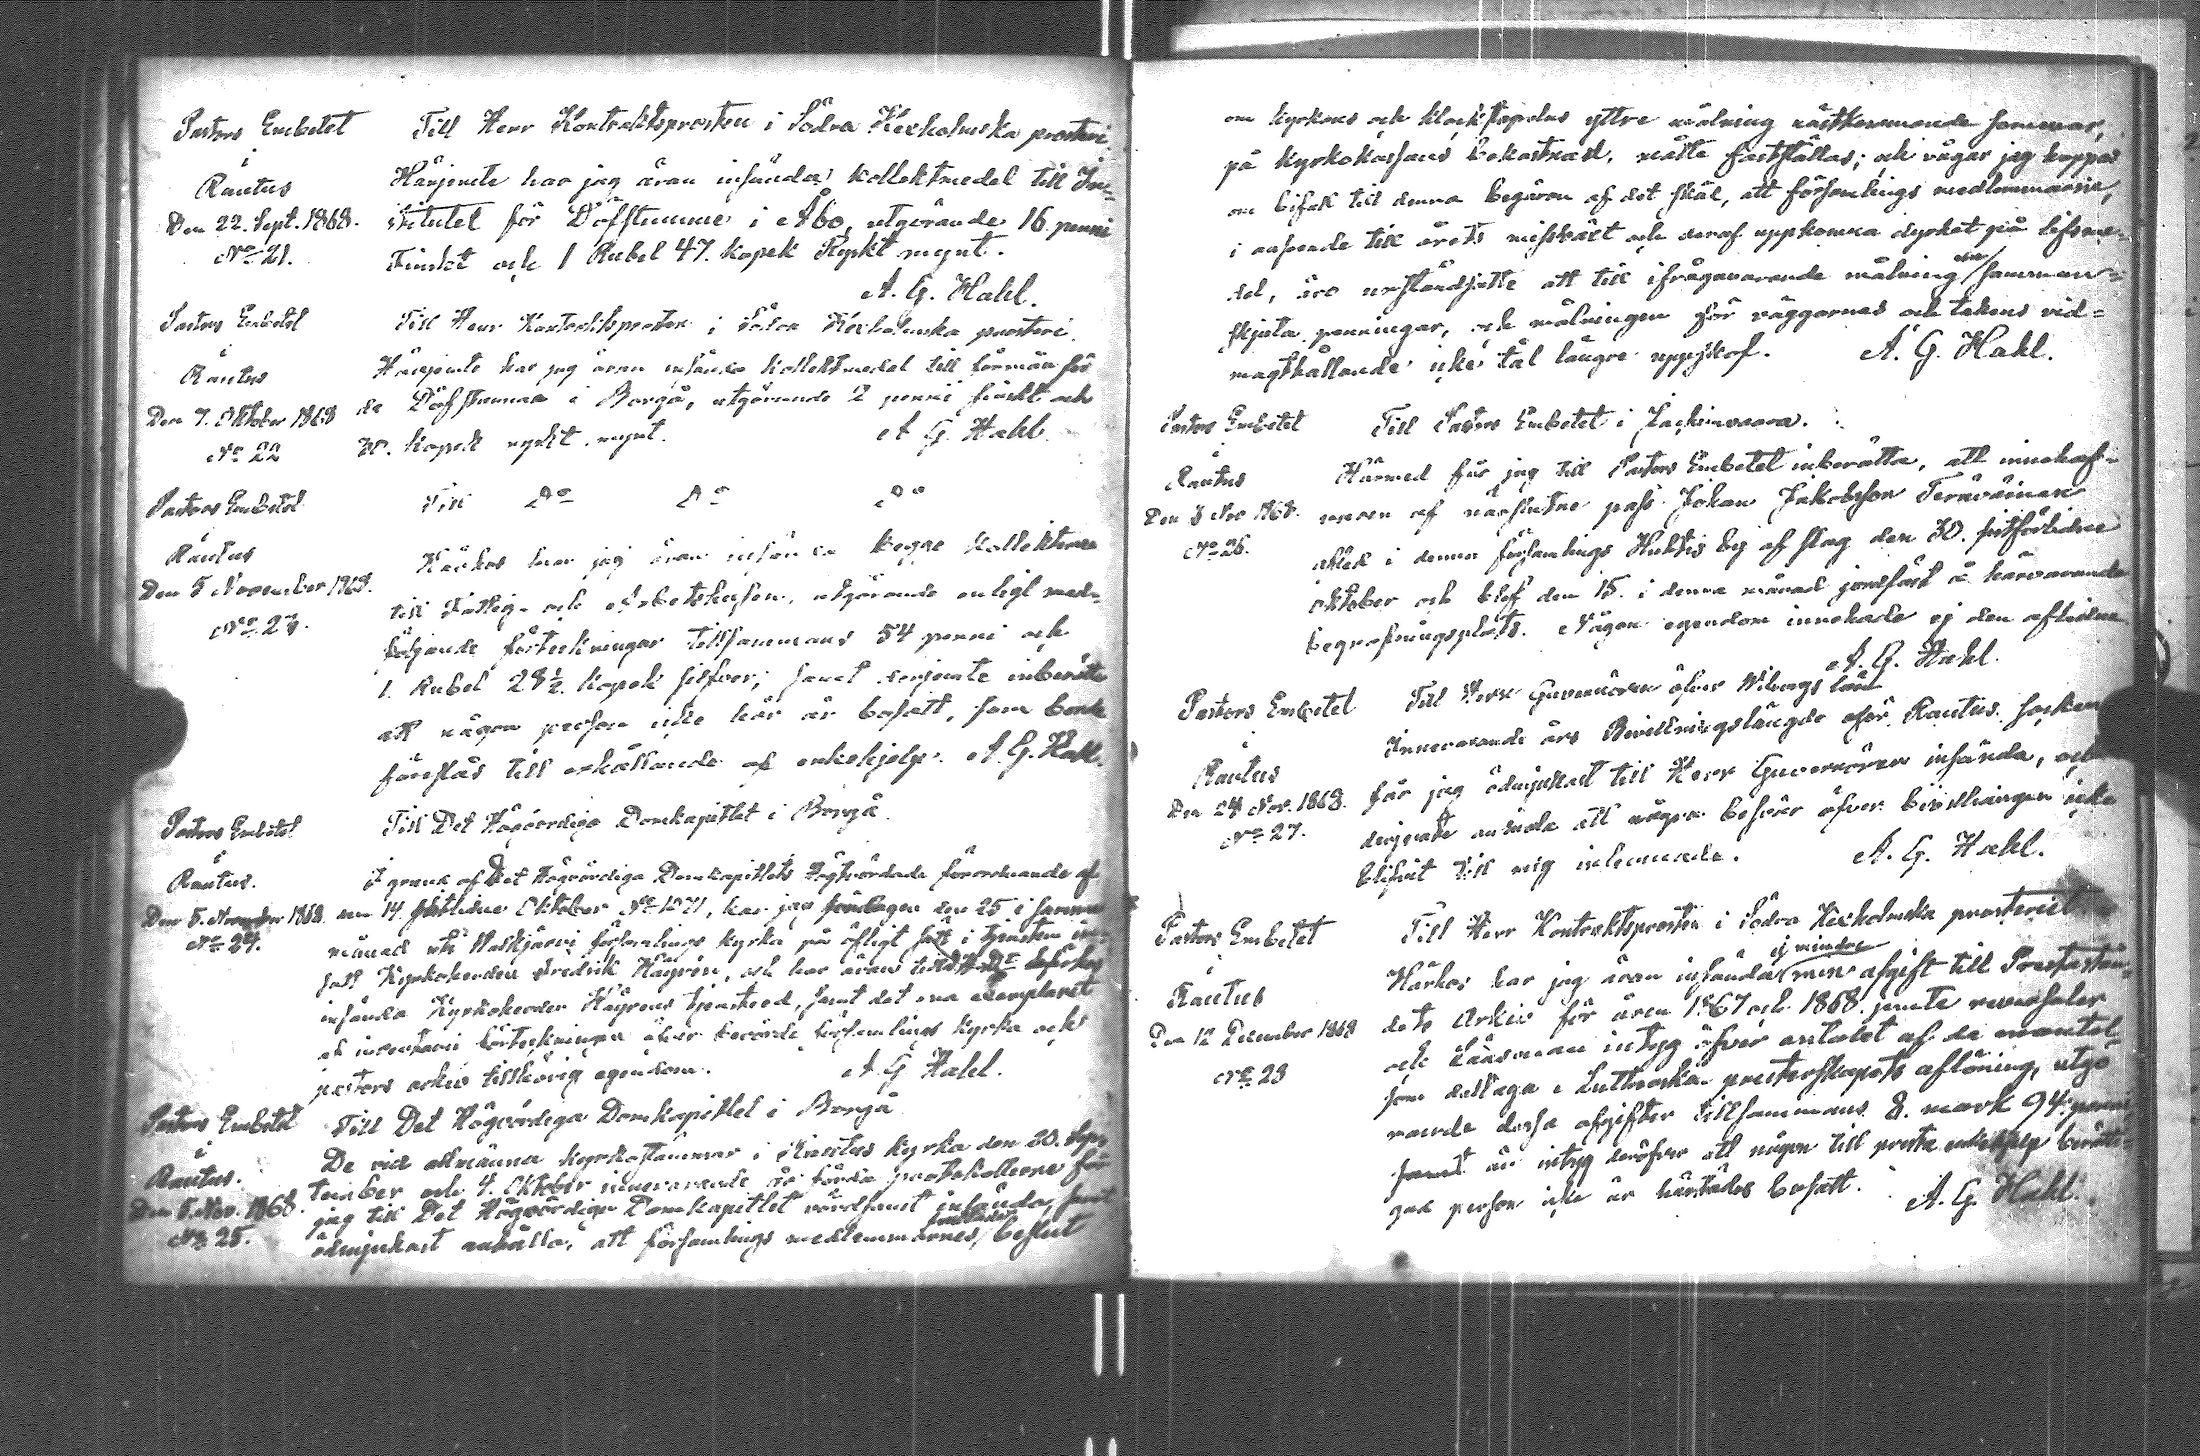 Pastors Embetet
i
Rautus
Den 22. Sept. 1868.
No 21.
Till Herr Kontraktsprosten i Södra Kexholmska prosteri.
Härjemte har jag äran insända kollektmedel till In-
stitutet för Döfstumme i Åbo, utgörande 16. penni
Finskt och 1 Rubel 47. kopek Ryskt mynt.
A. G. Hahl.
Pastors Embetet
i
Rautus
Den 7. Oktober 1868
No 22
Till Herr Kontraktsprosten i Södra Kexholmska prosteri.
Härjemte har jag äran insända kollektmedel till förmån för
de Döfstumma i Borgå, utgörande 2 penni finskt och
kopek ryskt mynt.
A. G. Hahl
Pastors Embetet
i
Rautus
Den 5 November 1868.
No 23.
Till Do Do Do
Härhos har jag äran insända begge kollekterna
till Fattig- och Arbetshusen, utgörande enligt med-
följande förteckningar tillsammans 54 penni och
1. Rubel 28½ kopek silfver; samt derjemte inberätta
att någon person icke här är bosatt, som borde
föreslås till erhållande af enkehjelp. A. G. Hahl.
Pastors Embetet
i
Rautus.
Den 5. November 1868.
No 24.
Till Det Högvördiga Domkapitlet i Borgå.
I grund af Det Högvördiga Domkapitlets högtvördade förordnande af
den 14. sistlidne Oktober No 1071, har jag söndagen den 25 i samma
månad uti Walkjärvi församlings kyrka på öfligt sätt i tjensten in-
satt Kyrkoherden Fredrik Hägrén, och har äran
insända Kyrkoherden Hägrens tjensteed, samt det ena exemplaret
af inventarii förteckningen öfver berörde församlings kyrka och
pastors arkiv tillhörig egendom.
A. G. Hahl.
Pastors Embetet
i
Rautus.
Den 5. Nov. 1868.
No 25.
Till Det Högvördiga Domkapitlet i Borgå
De vid allmänna kyrkostämmor i Rautus kyrka den 20. Sep-
tember och 4. Oktober innevarande år förda protokollerne får
jag till Det Högvördiga Domkapitlet vördsamt insända, samt
ödmjukast anhålla, att församlings medlemmarnes beslut
om kyrkans och klockstapelns yttre målning nästkommande sommar,
på kyrkokassans bekostnad, måtte fastställas; och vågar jag hoppas
om bifall till denna begäran af det skäl, att församlings medlemmarne,
i anseende till årets missväxt och deraf uppkomna dyrhet på lifsme-
del, äro urståndsatte att till ifrågavarande målning samman-
skjuta penningar, och målningen för väggarnas och takens vid-
magthållande icke tål längre uppskof.
A. G. Hahl.
Pastors Embetet
i
Rautus
Den 8 Nov 1868.
No 26.
Till Pastors Embetet i Jaakimvaara.
Härmed får jag till Pastors Embetet inberätta, att innehaf-
varen af närslutne pass Johan Jakobsson Terävainen
afled i denna församlings Huhtis by af slag den 30. sistförlidne
Oktober och blef den 15. i denna månad jordfäst å härvarande
begrafningsplats. Någon egendom innehade ej den aflidne
A. G. Hahl.
Pastors Embetet
i
Rautus
Den 24 Nov. 1868.
No 27.
Till Herr Guvernören öfver Wiborgs län
Innevarande års Bevillningslängde öfver Rautus socken
får jag ödmjukast till Herr Guvernören insända, och
derjemte anmäla att några besvär öfver bevillningen icke
blifvit till mig inlemnade.
A. G. Hahl.
Pastors Embetet
i
Rautus
Den 12 December 1868
No 28
Till Herr Kontraktsprosten i Södra Kexholmska prosteriet
ej mindre
Härhos har jag äran insända min afgift till Prestestån-
dets Arkiv för åren 1867 och 1868. jemte reversaler
och Länsman intyg öfver antalet af de mantal
som deltaga i Lutherska presterskapets aflöning, utgö
rande dessa afgifter tillsammans 8. mark 94. penni
samt än intyg deröfver att någon till prosta enkehjelp berätti-
gad person icke är härstädes bosatt.
A. G. Hahl.